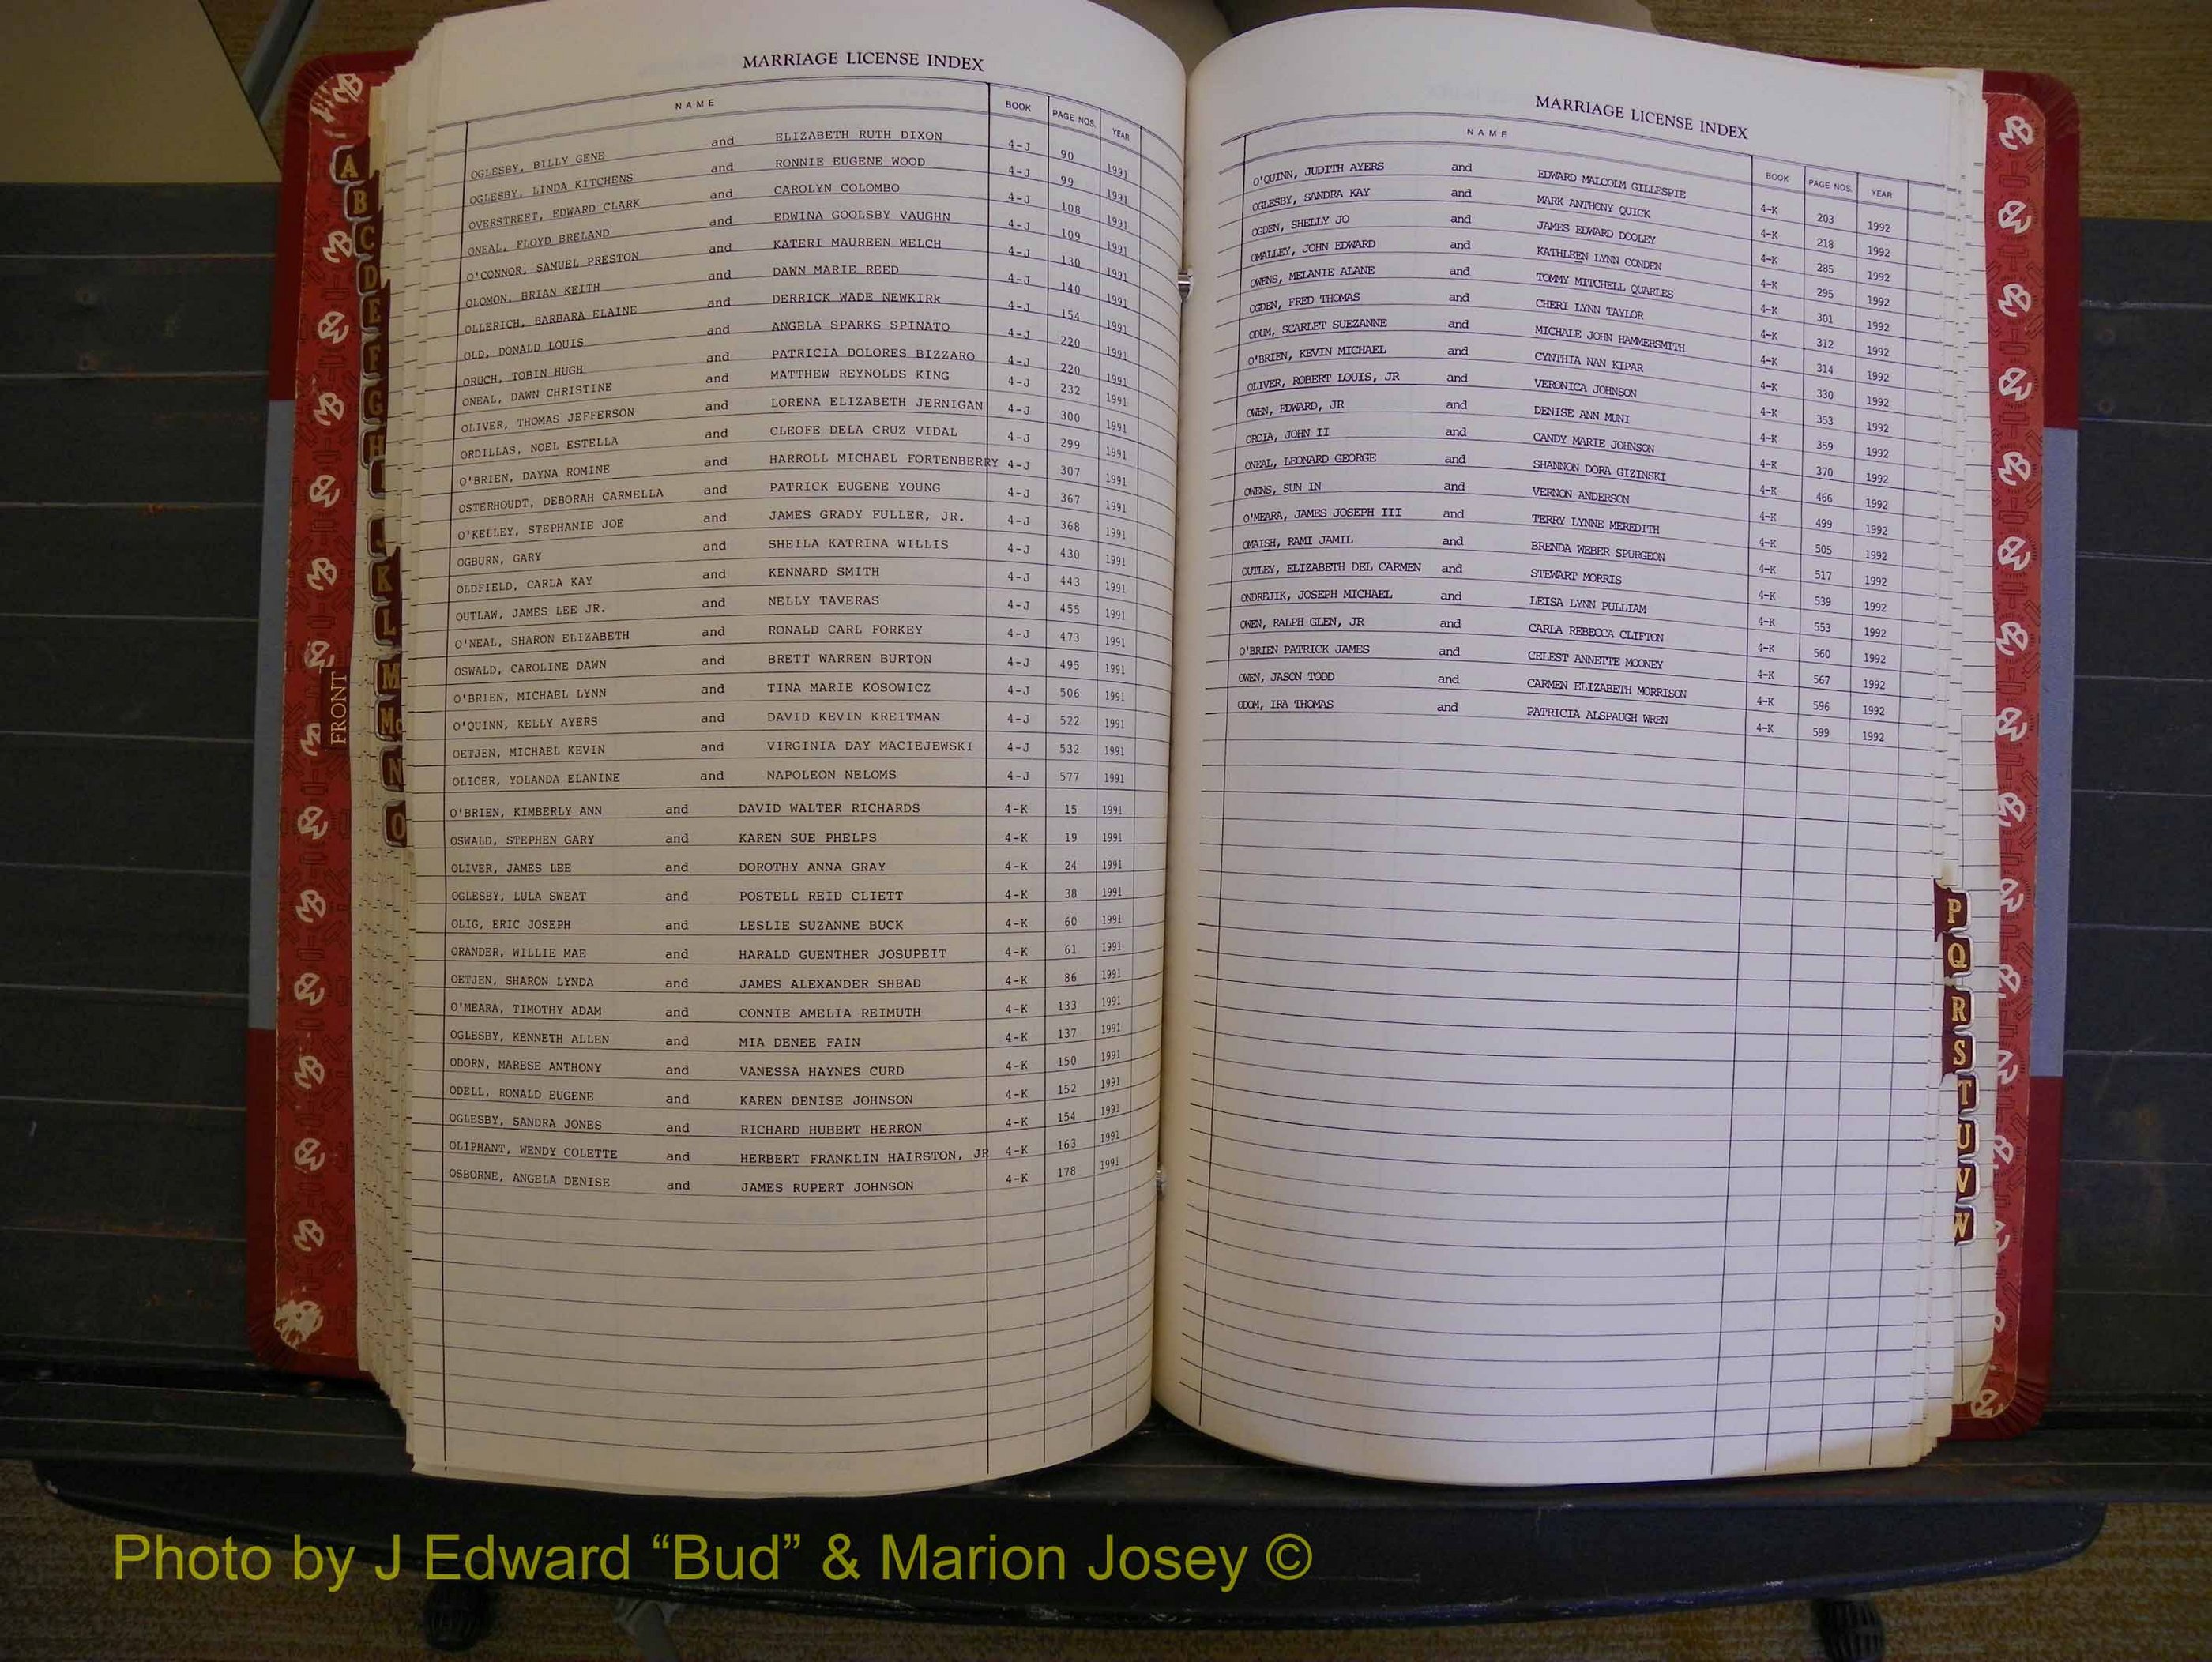 MARRIAGE LICENSE INDEX
NAME BOOK PAGE NOS. YEAR
OGLESBY, BILLY GENE and ELIZABETH RUTH DIXON 4-J 90 1991
OGLESBY, LINDA KITCHENS and RONNIE EUGENE WOOD 4-J 99 1991
OVERSTREET, EDWARD CLARK and CAROLYN COLOMBO 4-J 108 1991
ONEAL, FLOYD BRELAND and EDWINA GOOLSBY VAUGHN 4-J 109 1991
O'CONNOR, SAMUEL PRESTON and KATERI MAUREEN WELCH 4-J 130 1991
OLOMON, BRIAN KEITH and DAWN MARIE REED 4-J 140 1991
OLLERICH, BARBARA ELAINE and DERRICK WADE NEWKIRk 4-J 154 1991
OLD, DONALD LOUIS and ANGELA SPARKS SPINATO 4-J 220 1991
ORUCH, TOBIN HUGH and PATRICIA DOLORES BIZZARO 4-J 220 1991
ONEAL, DAWN CHRISTINE and MATTHEW REYNOLDS KING 4-J 232 1991
OLIVER, THOMAS JEFFERSON and LORENA ELIZABETH JERNIGAN 4-J 300 1991
ORDILLAS, NOEL ESTELLA and CLEOFE DELA CRUZ VIDAL 4-J 299 1991
O'BRIEN, DAYNA ROMINE and HARROLL MICHAEL FORTENBERRY 4-J 307 1991
OSTERHOUDT, DEBORAH CARMELLA and PATRICK EUGENE YOUNG 4-J 367 1991
O'KELLEY, STEPHANIE JOE and JAMES GRADY FULLER, JR. 4-J 368 1991
OGBURN, GARY and SHEILA KATRINA WILLIS 4-J 430 1991
OLDFIELD, CARLA KAY and KENNARD SMITH 4-J 443 1991
OUTLAW, JAMES LEE JR. and NELLY TAVERAS 4-J 455 1991
O'NEAL, SHARON ELIZABETH and RONALD CARL FORKEY 4-J 473 1991
OSWALD, CAROLINE DAWN and BRETT WARREN BURTON 4-J 495 1991
O'BRIEN, MICHAEL LYNN and TINA MARIE KOSOWICZ 4-J 506 1991
O'QUINN, KELLY AYERS and DAVID KEVIN KREITMAN 4-J 522 1991
OETJEN, MICHAEL KEVIN and VIRGINIA DAY MACIEJEWSKI 4-J 532 1991
OLICER, YOLANDA ELANINE and NAPOLEON NELOMS 4-J 577 1991
O'BRIEN, KIMBERLY ANN and DAVID WALTER RICHARDS 4-K 15 1991
OSWALD, STEPHEN GARY and KAREN SUE PHELPS 4-K 19 1991
OLIVER, JAMES LEE and DOROTHY ANNA GRAY 4-K 24 1991
OGLESBY, LULA SWEAT and POSTELL REID CLIETT 4-K 38 1991
OLIG, ERIC JOSEPH and LESLIE SUZANNE BUCK 4-K 60 1991
ORANDER, WILLIE MAE and HARALD GUENTHER JOSUPEIT 4-K 61 1991
OETJEN, SHARON LYNDA and JAMES ALEXANDER SHEAD 4-K 86 1991
O'MEARA, TIMOTHY ADAM and CONNIE AMELIA REIMUTH 4-K 133 1991
OGLESBY, KENNETH ALLEN and MIA DENEE FAIN 4-K 137 1991
ODORN, MARESE ANTHONY and VANESSA HAYNES CURD 4-K 150 1991
ODELL, RONALD EUGENE and KAREN DENISE JOHNSON 4-K 152 1991
OGLESBY, SANDRA JONES and RICHARD HUBERT HERRON 4-K 154 1991
OLIPHANT, WENDY COLETTE and HERBERT FRANKLIN HAIRSTON, JR 4-K 163 1991
OSBORNE, ANGELA DENISE and JAMES RUPERT JOHNSON 4-K 178 1991
MARRIAGE LICENSE INDEX
NAME BOOK PAGE NOS. YEAR
O'QUINN, JUDITH AYERS and EDWARD MALCOLM GILLESPIE 4-K 203 1992
OGLESBY, SANDRA KAY and MARK ANTHONY QUICK 4-K 218 1992
OGDEN, SHELLY JO and JAMES EDWARD DOOLEY 4-K 285 1992
OMALLEY, JOHN EDWARD and KATHLEEN LYNN CONDEN 4-K 295 1992
OWENS, MELANIE ALANE and TOMMY MITCHELL QUARLES 4-K 301 1992
OGDEN, FRED THOMAS and CHERI LYNN TAYLOR 4-K 312 1992
ODUM, SCARLET SUEZANNE and MICHALE JOHN HAMMERSMITH 4-K 314 1992
O'BRIEN, KEVIN MICHAEL and CYNTHIA NAN KIPAR 4-K 330 1992
OLIVER, ROBERT LOUIS, JR and VERONICA JOHNSON 4-K 353 1992
OWEN, EDWARD, JR and DENISE ANN MUNI 4-K 359 1992
ORCIA, JOHN II and CANDY MARIE JOHNSON 4-K 370 1992
ONEAL, LEONARD GEORGE and SHANNON DORA GIZINSKI 4-K 466 1992
OWENS, SUN IN and VERNON ANDERSON 4-K 499 1992
O'MEARA, JAMES JOSEPH III and TERRY LYNNE MEREDITH 4-K 505 1992
OMAISH, RAMI JAMIL and BRENDA WEBER SPURGEON 4-K 517 1992
OUTLEY, ELIZABETH DEL CARMEN and STEWART MORRIS 4-K 539 1992
ONDREJIK, JOSEPH MICHAEL and LEISA LYNN PULLIAM 4-K 553 1992
OWEN, RALPH GLEN, JR and CARLA REBECCA CLIFTON 4-K 560 1992
O'BRIEN PATRICK JAMES and CELEST ANNETTE MOONEY 4-K 567 1992
OWEN, JASON TODD and CARMEN ELIZABETH MORRISON 4-K 596 1992
ODOM, IRA THOMAS and PATRICIA ALSPAUGH WREN 4-K 599 1992
A
B
C
D
E
F
G
H
I
J
K
L
M
Mc
N
O
FRONT
P
Q
R
S
T
U
V
W
Photo by J Edward “Bud” & Marion Josey ©